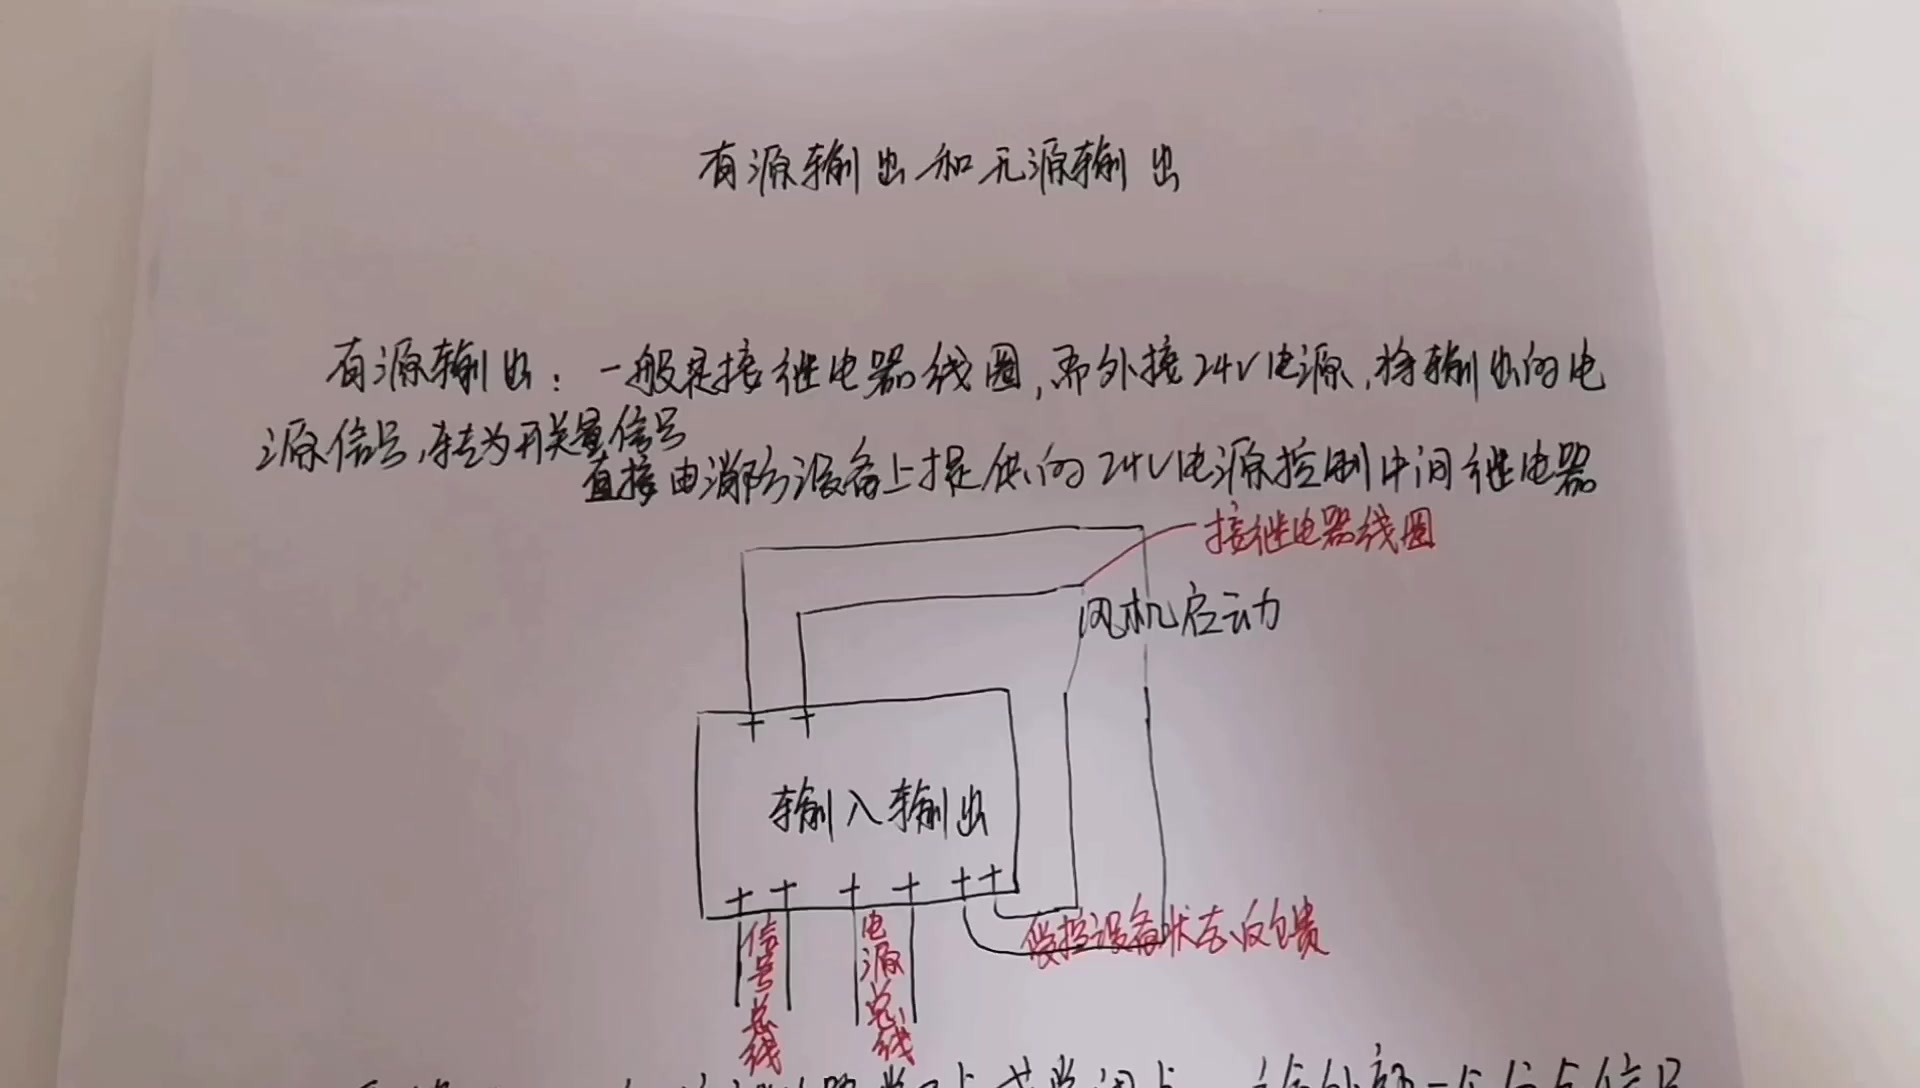 有源输出和无源输出
有源输出：一般是接继电器线圈，需外接24V电源，将输出的电
源信号，转为开关量信号
直接由消防设备上提供的24V电源控制中间继电器
接继电器线圈
风机启动
输入输出
受控设备状态反馈
信号总线
电源总线